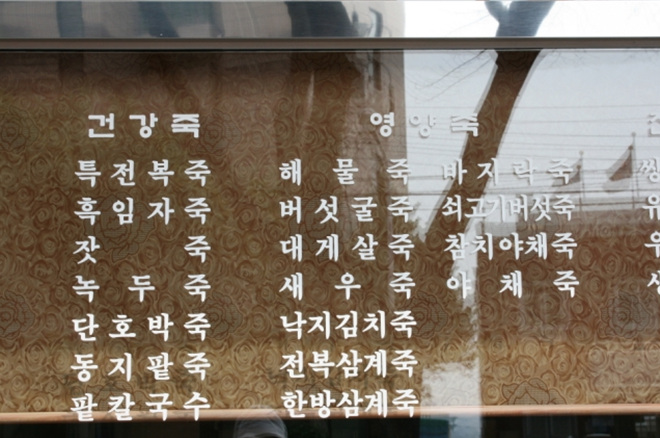 건강죽
특전복죽
흑임자죽
잣죽
녹두죽
단호박죽
동지팥죽
팥칼국수
영양죽
해물죽 바지락죽
버섯굴죽 쇠고기버섯죽
대게살죽 참치야채죽
새우죽 야채죽
낙지김치죽
전복삼계죽
한방삼계죽